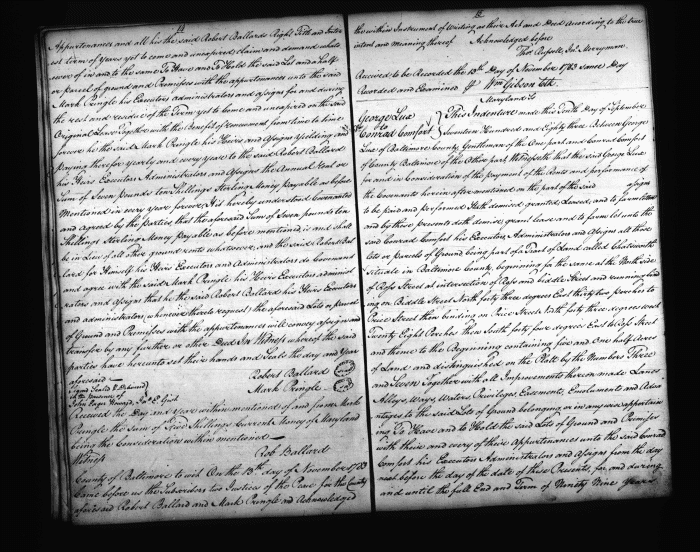 Appurtenances and all his the said Robert Ballards Right Title and Inter
est term of Years yet to come and unexpired claim and demand whats
oever of in and to the same To Have and To Hold the said Lot and half
or parcel of ground and Premises with the appurtenances unto the said
Mark Pringle his Executors administrators and assigns for and during
the rest and residue of the Term yet to come and unexpired in the said
Original Lease Together with the Benefit of renewment from time to time
forever he the said Mark Pringle his Heirs and assigns Yielding and
paying therefor yearly and every year to the said Robert Ballard
his Heirs Executors Administrators and Assigns the Annual Rent or
Sum of Seven pounds ten Shillings Sterling Money payable as before
Mentioned in every year forever It is hereby understood Covenanted
and agreed by the parties that the aforesaid Sum of Seven pounds ten
Shillings Sterling Money payable as before mentioned is and shall
be in Lieu of all other ground rents whatsoever, and the said Robert Bal
lard for Himself his Heirs Executors and Administrators do Covenant
and agree with the said Mark Pringle his Heirs Executors administ
rators and Assigns that he the said Robert Ballard his Heirs Executors
and administrators, whenever thereto request the aforesaid Lots or parcel
of Ground and Premises with the appurtenances will convey assign and
transfer by any further or other Deed In Witness whereof the said
parties have hereunto set their hands and Seals the day and Year
aforesaid
Robert Ballard
Signed Sealed & Delivered
in the Presence of
Mark Pringle
Received the Day and Year within mentioned of and from Mark
Pringle the Sum of Five Shillings Current Money of Maryland
being the Consideration within mentioned
Witness
Rob Ballard
County of Baltimore to wit On the 13th day of November 1783
Came before us the Subscribers two Justices of the Peace for the County
aforesaid Robert Ballard and Mark Pringle and Acknowledged
the within Instrument of Writing as their Act and Deed According to the true
intent and Meaning thereof Acknowledged before
Thos Russell, Jno Merryman
Received to be Recorded the 13th Day of November 1783 same Day
Recorded and Examined Wm Gibson Clk
Maryland ss
George Lux
to
Conrad Comfort
This Indenture made this Tenth Day of September
Seventeen Hundred and Eighty three Between George
Lux of Baltimore County Gentleman of the One part and Conrad Comfort
of County Baltimore of the Other part Witnesseth that the said George Lux
for and in Consideration of the payment of the Rents and performance of
the Covenants herein after mentioned on the part of the said assigns
to be paid and performed Hath demised granted Leased, and to farm letten
and by these presents doth demise grant lease and to farm let unto the
said Conrad Comfort his Executors Administrators and Assigns all those
lots or parcels of Ground being part of a Tract of Land called Chatsworth
Situate in Baltimore County, beginning for the same at the North side
of Ross Street at intersection of Ross and Biddle Street and running bind
ing on Biddle Street North forty three degrees East thirty two perches to
Price Street then binding on Price Street North forty three degrees West
Twenty Eight Perches Then South forty four degrees East to Ross Street
and thence to the Beginning containing five and One half Acres
of Land and distinguished on the Platt by the Numbers Three
and Seven Together with all Improvements thereon made Lanes
Alleys Ways Waters Privileges Easements, Emoluments and Advan
tages to the said Lots of Ground belonging or in any wise appertain
ing To Have and to Hold the said Lots of Ground and Premises
with their and every of their Appurtenances unto the said Conrad
Comfort his Executors Administrators and Assigns from the day
next before the day of the date of these Presents, for, and during
and until the full End and Term of Ninety Nine Years